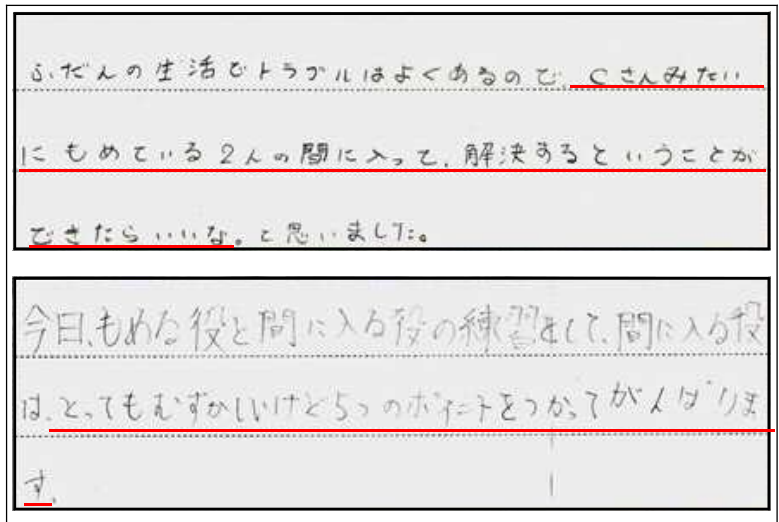 ふだんの生活でトラブルはよくあるので、Cさんみたい
にもめている2人の間に入って、解決するということが
できたらいいな。と思いました。
今日、もめる役と間に入る役の練習をして、間に入る役
は、とってもむずかしいけど5つのポイントをつかってがんばりま
す。